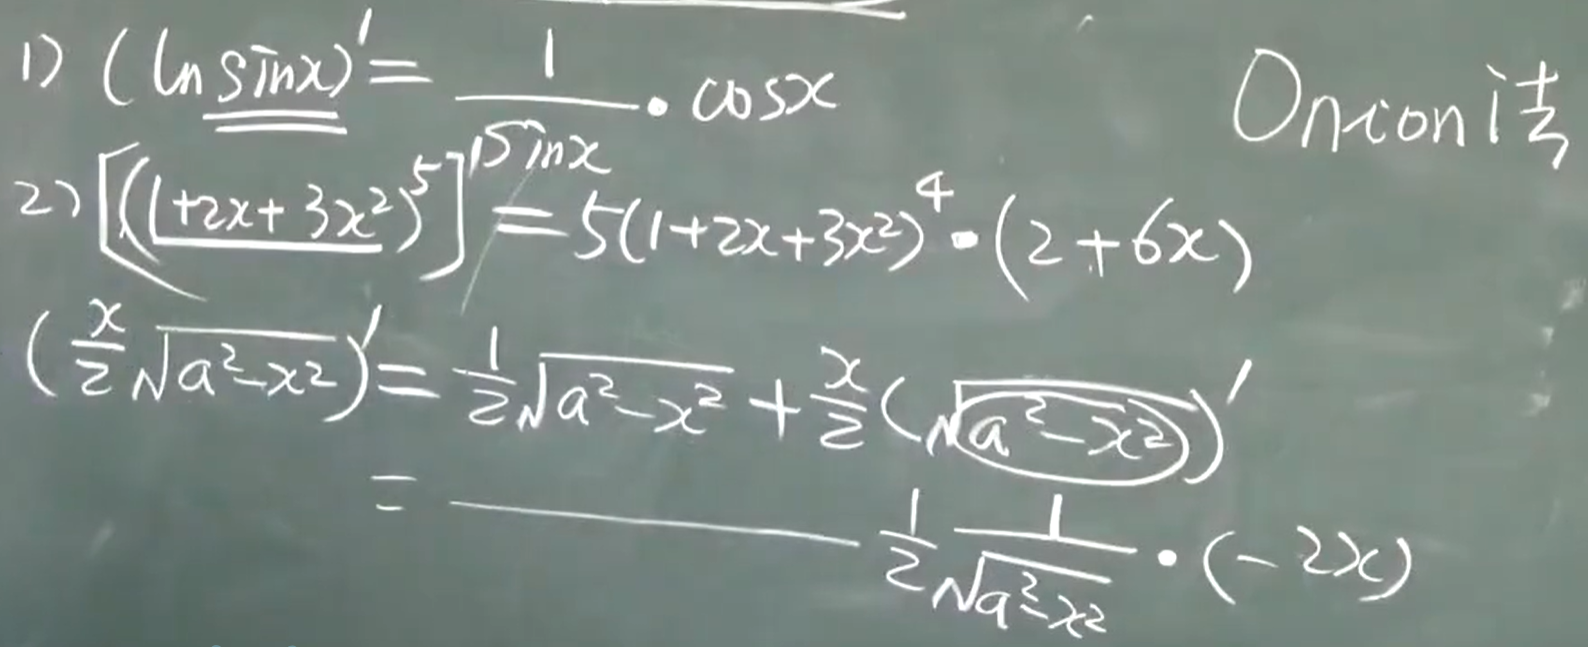 1) (ln sinx)' = 1/sinx · cosx
Onion法
2) [(1+2x+3x²)⁵]' = 5(1+2x+3x²)⁴ · (2+6x)
(x/2 √(a²-x²))' = 1/2 √(a²-x²) + x/2 (√(a²-x²))'
= ——— 1/2 1/√(a²-x²) · (-2x)